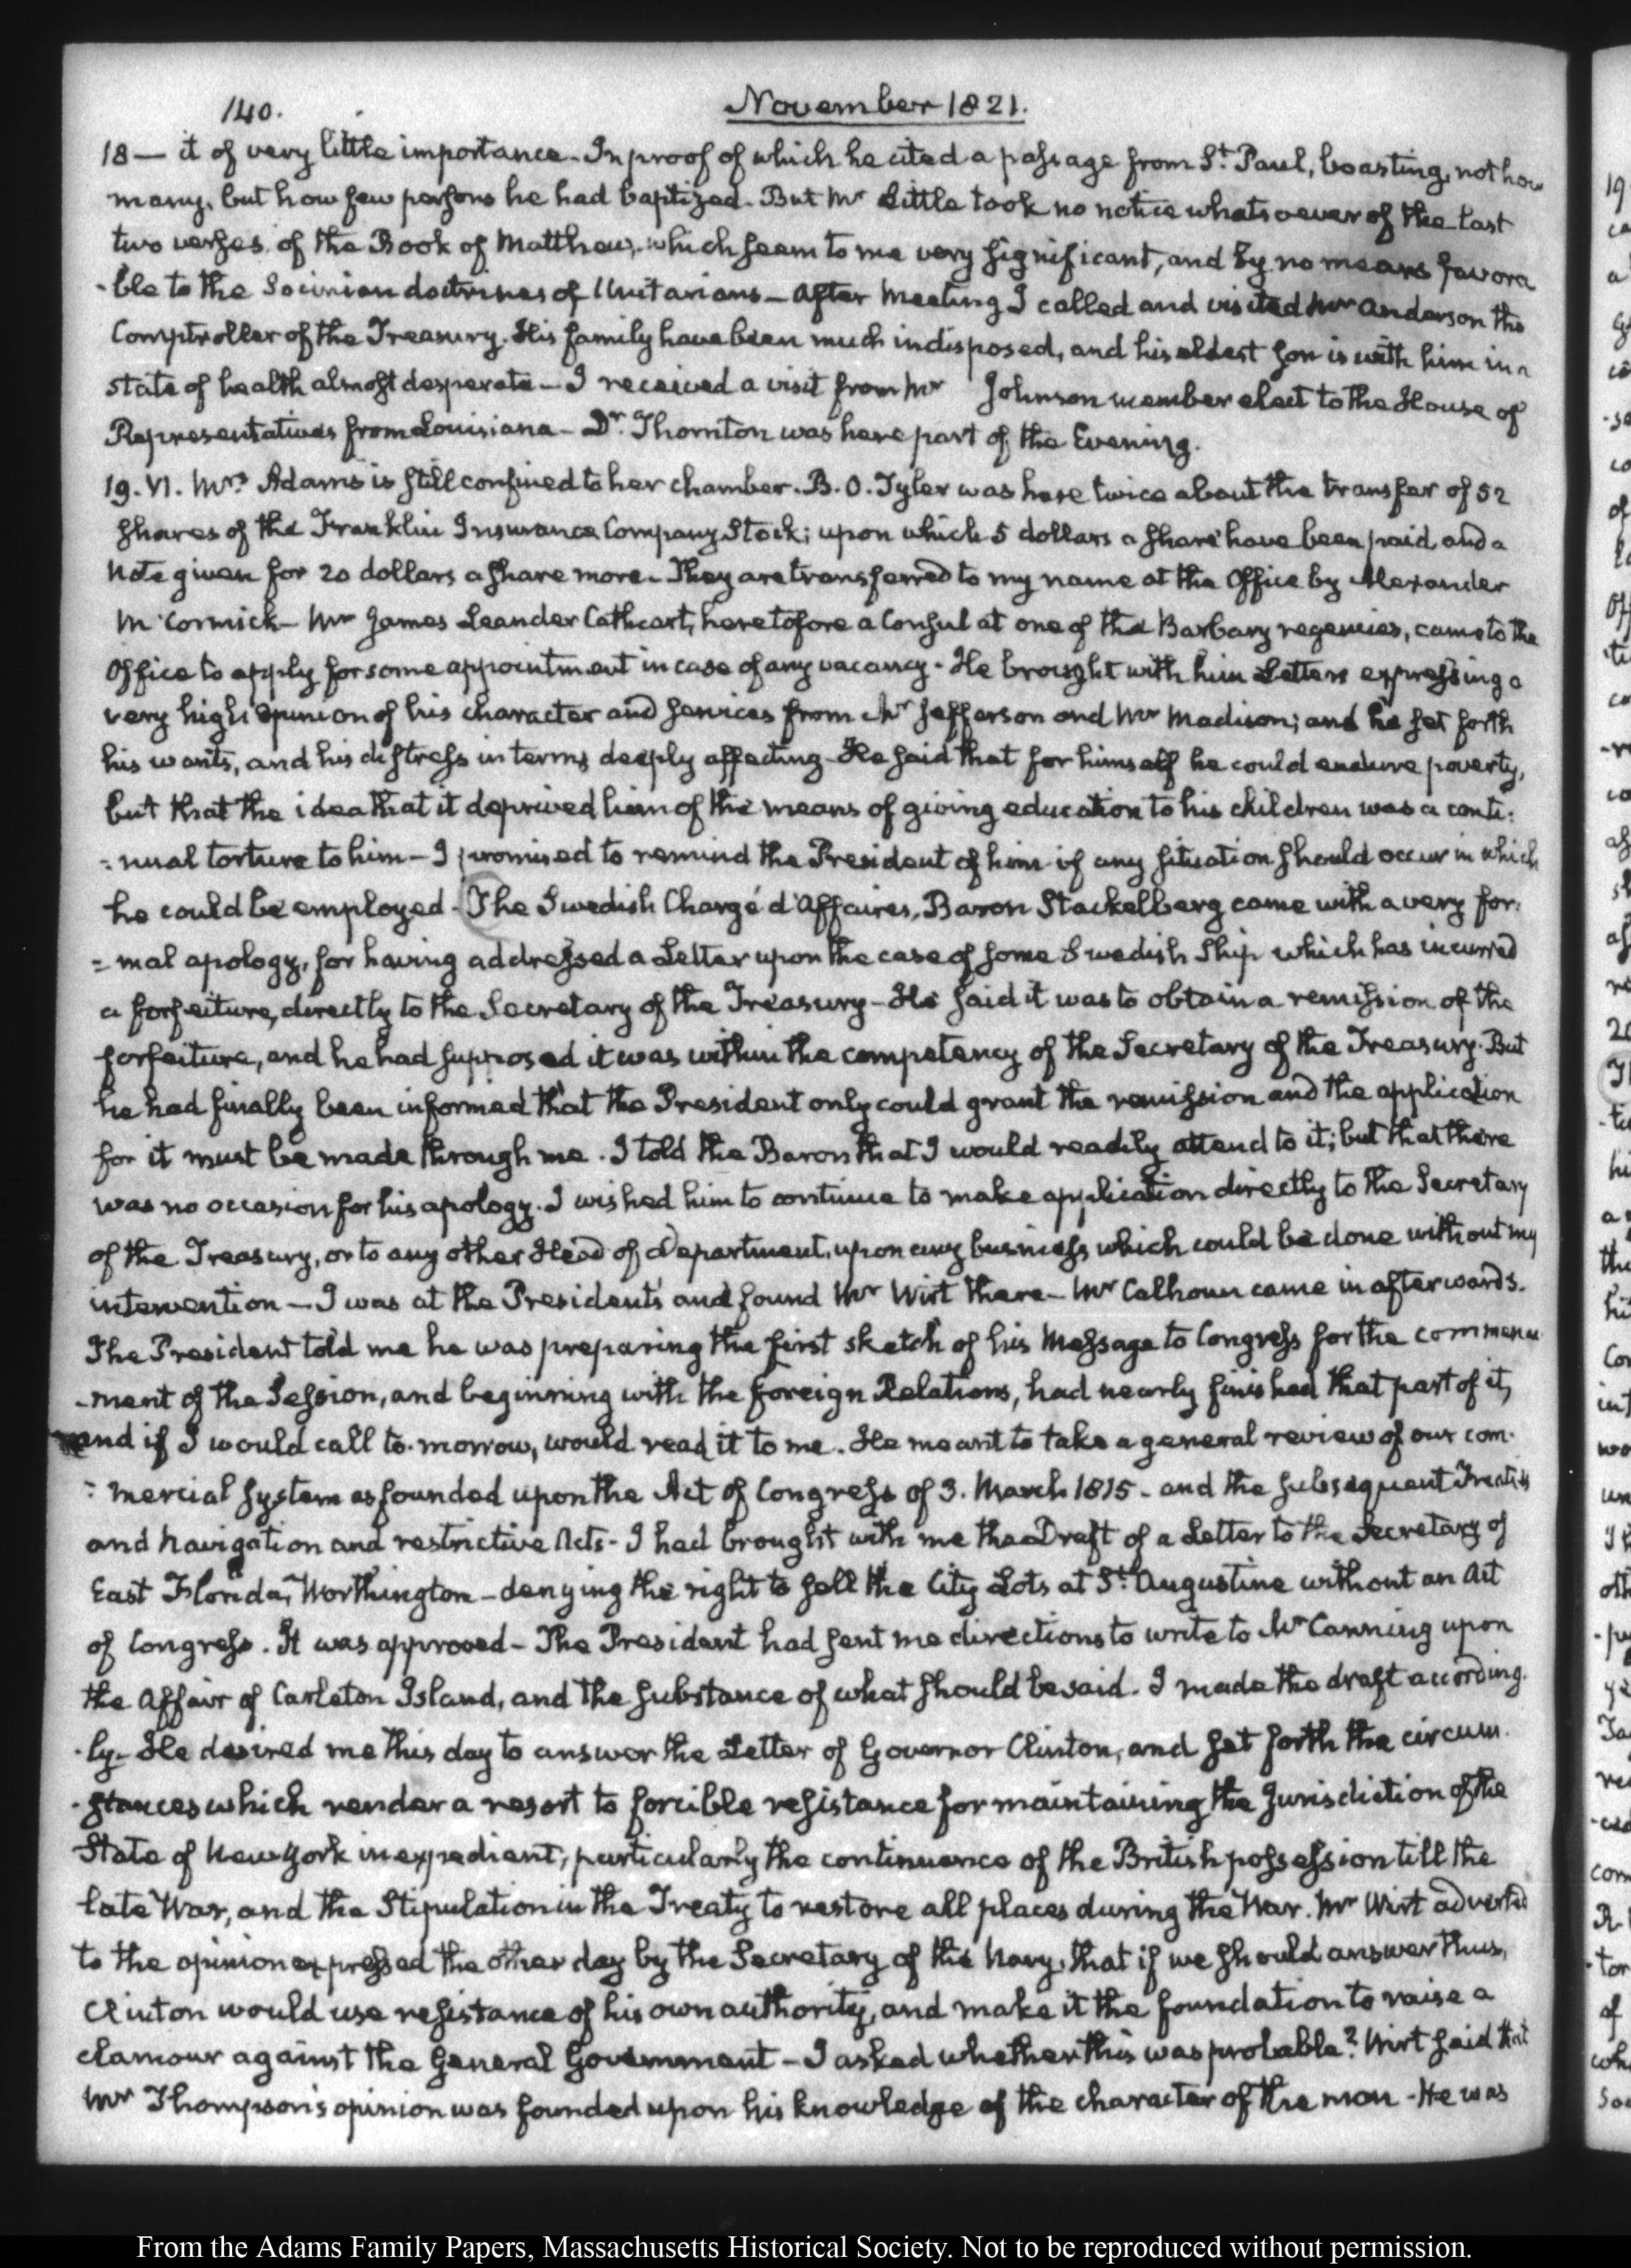 140.
November 1821.
18 — it of very little importance. In proof of which he cited a passage from St. Paul, boasting, not how
many, but how few persons he had baptized. But Mr Little took no notice whatsoever of the last
two verses of the Book of Matthew, which seem to me very significant, and by no means favora
-ble to the Socinian doctrines of Unitarians — After Meeting I called and visited Mr Anderson the
Comptroller of the Treasury. His family have been much indisposed, and his eldest son is with him in a
state of health almost desperate — I received a visit from Mr Johnson member elect to the House of
Representatives from Louisiana — Dr. Thornton was here part of the Evening.
19. VI. Mrs Adams is still confined to her chamber. B. O. Tyler was here twice about the transfer of 52
shares of the Franklin Insurance Company Stock; upon which 5 dollars a share have been paid, and a
Note given for 20 dollars a share more. They are transferred to my name at the Office by Alexander
McCormick — Mr James Leander Cathcart, heretofore a Consul at one of the Barbary regencies, came to the
Office to apply for some appointment in case of any vacancy. He brought with him Letters expressing a
very high opinion of his character and services from Mr Jefferson and Mr Madison; and he set forth
his wants, and his distress in terms deeply affecting. He said that for himself he could endure poverty,
but that the idea that it deprived him of the means of giving education to his children was a conti:
:nual torture to him — I promised to remind the President of him if any situation should occur in which
he could be employed — The Swedish Chargé d'Affaires, Baron Stackelberg came with a very for:
=mal apology, for having addressed a Letter upon the case of some Swedish Ship which has incurred
a forfeiture, directly to the Secretary of the Treasury — He said it was to obtain a remission of the
forfeiture, and he had supposed it was within the competency of the Secretary of the Treasury. But
he had finally been informed that the President only could grant the remission and the application
for it must be made through me. I told the Baron that I would readily attend to it; but that there
was no occasion for his apology. I wished him to continue to make application directly to the Secretary
of the Treasury, or to any other Head of Department, upon any business which could be done without my
intervention — I was at the President's and found Mr Wirt there — Mr Calhoun came in afterwards.
The President told me he was preparing the first sketch of his Message to Congress for the commence
-ment of the Session, and beginning with the foreign Relations, had nearly finished that part of it,
and if I would call to-morrow, would read it to me. He meant to take a general review of our com-
:mercial system as founded upon the Act of Congress of 3. March 1815 — and the subsequent Treaties
and navigation and restrictive Acts — I had brought with me the Draft of a Letter to the Secretary of
East Florida, Worthington — denying the right to sell the City Lots at St. Augustine without an Act
of Congress. It was approved — The President had sent me directions to write to Mr Canning upon
the Affair of Carleton Island, and the substance of what should be said. I made the draft according
-ly — He desired me this day to answer the Letter of Governor Clinton, and set forth the circum
-stances which render a resort to forcible resistance for maintaining the Jurisdiction of the
State of New York inexpedient; particularly the continuance of the British possession till the
late War, and the Stipulation in the Treaty to restore all places during the War. Mr Wirt adverted
to the opinion expressed the other day by the Secretary of the Navy, that if we should answer thus,
Clinton would use resistance of his own authority, and make it the foundation to raise a
clamour against the General Government — I asked whether this was probable? Wirt said that
Mr Thompson's opinion was founded upon his knowledge of the character of the man — He was
From the Adams Family Papers, Massachusetts Historical Society. Not to be reproduced without permission.